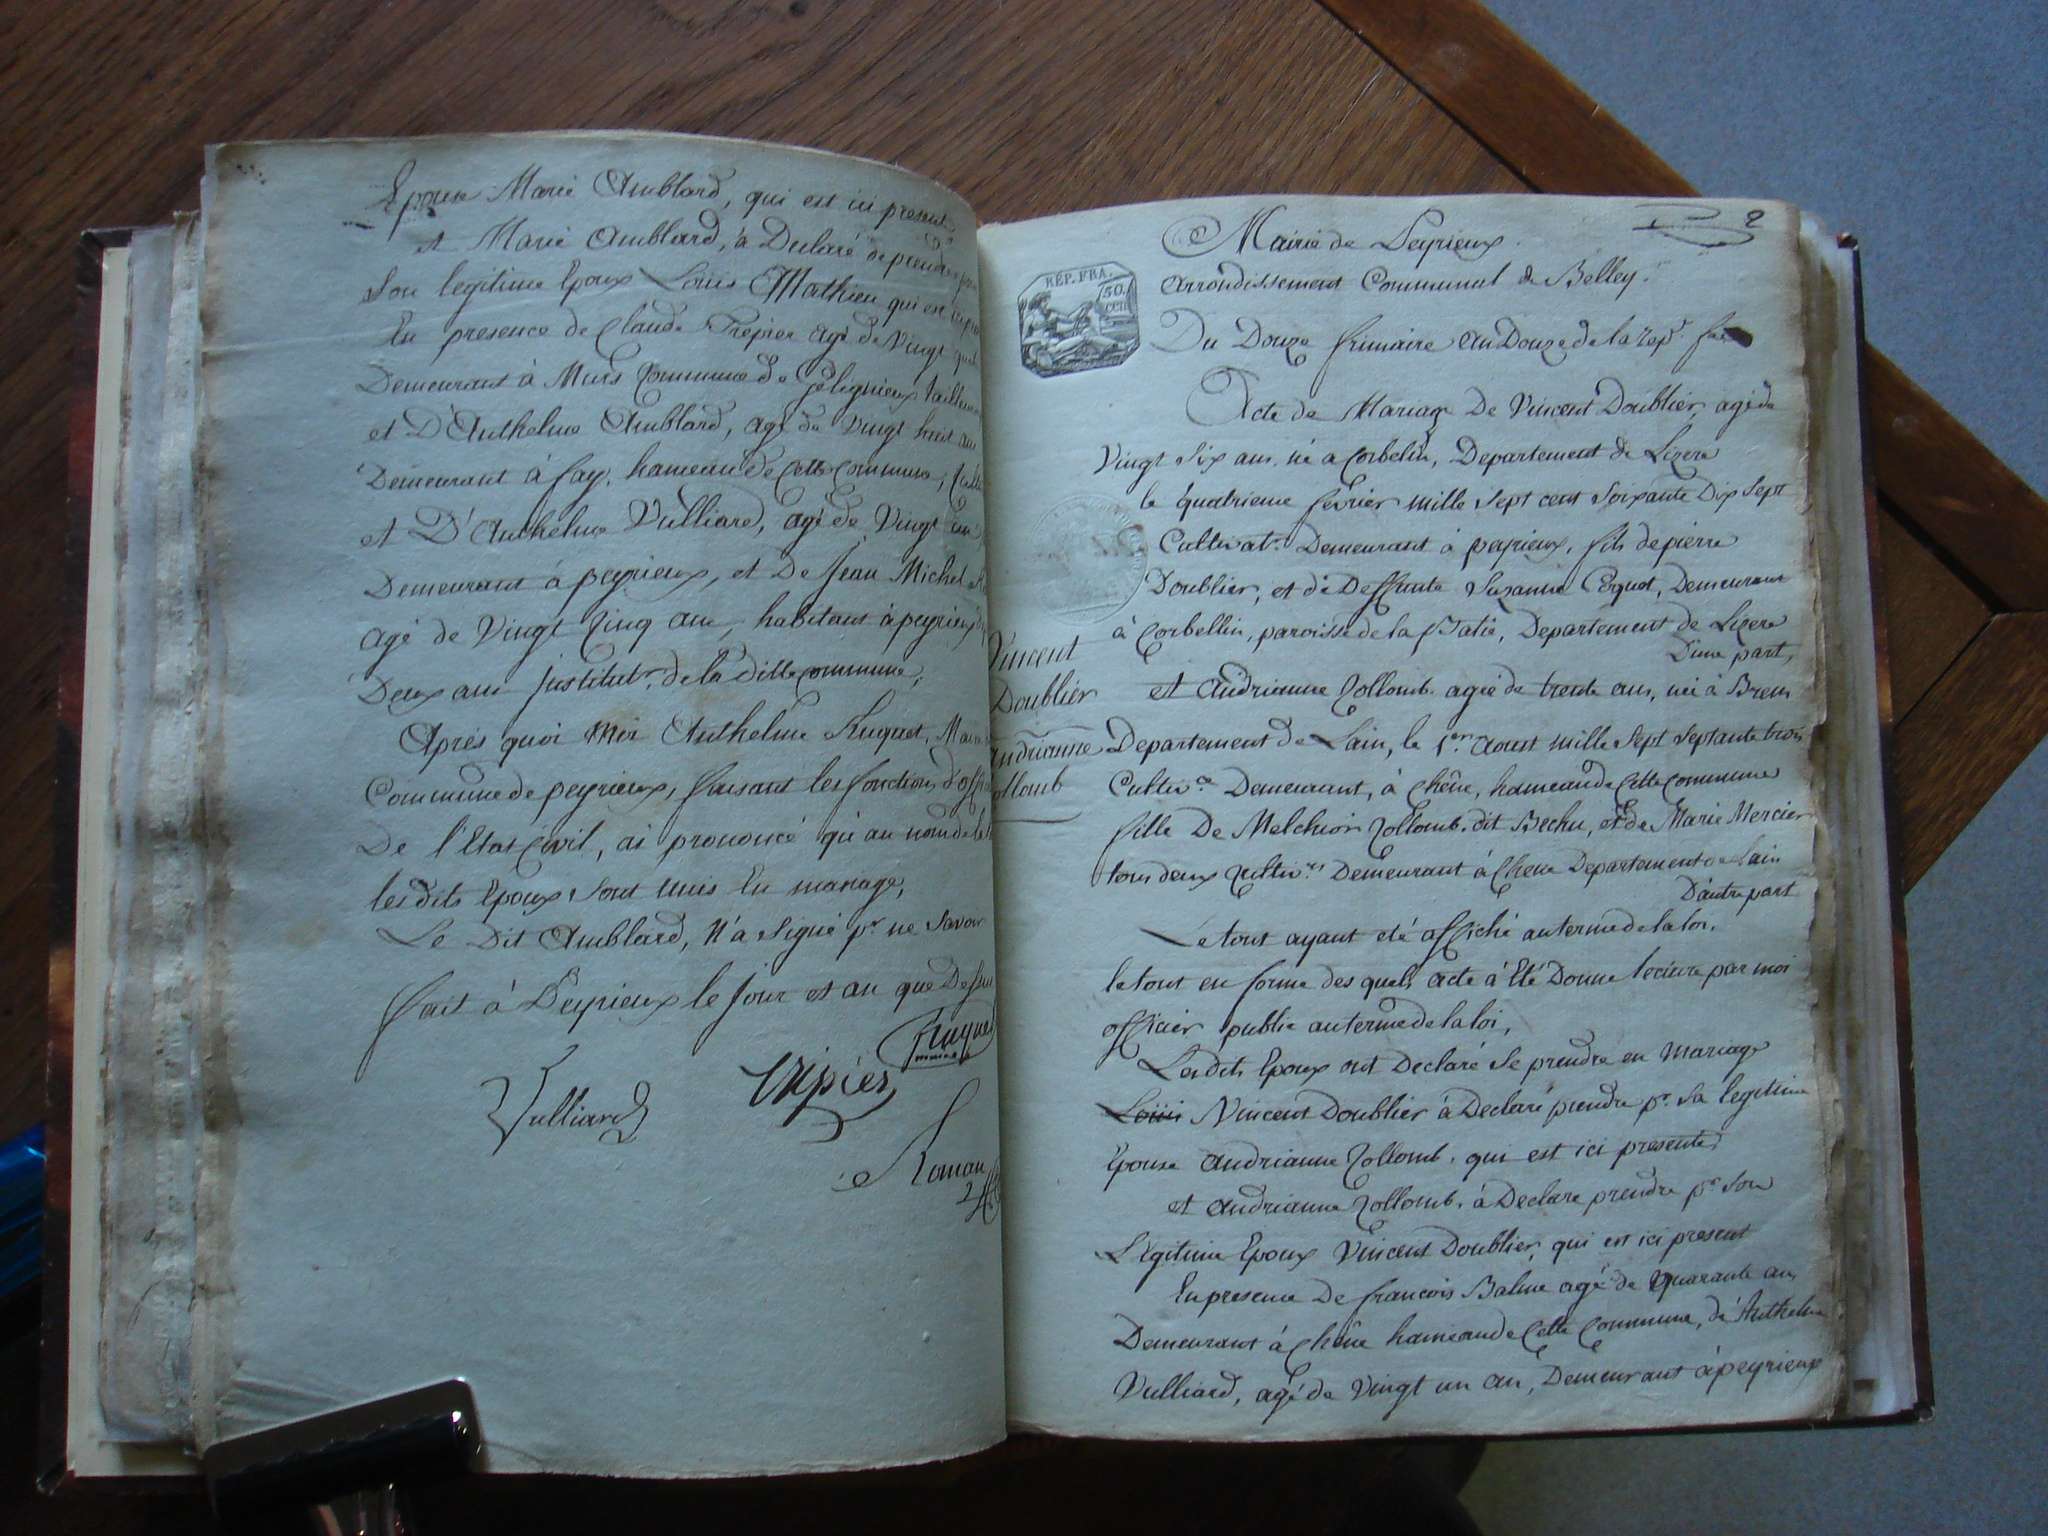 Epouse Marie Amblard, qui est ici presente
et Marie Amblard, a Declaré de prendre pour
Son legitime Epoux Louis Mathieu qui est ici
En presence de Claude Trepier agé de Vingt
Demeurant à Murs Commune de peligneux tailleur
et D'Anthelme Amblard, agé de Vingt huit ans
Demeurant à fay, hameau de Cette Commune,
et D'Anthelme Vulliard, agé de Vingt un
Demeurant à peyrieux, et De Jean Michel
agé de Vingt Cinq ans, habitant à peyrieux
Deux ans Institutr. de la ditte commune,
Après quoi Moi Anthelme Ruquet, Maire
Commune de peyrieux, faisant les fonctions
De l'Etat Civil, ai prononcé qu'au nom de la
les dits Epoux sont unis En mariage,
Le Dit Amblard, n'a Signé pr. ne Savoir
fait à Peyrieux le Jour et an que Dessus
Ruquet
Vulliard
trepier
Roman
Mairie de Peyrieux.
Arrondissement Communal de Belley.
RÉP. FRA.
50.
CEN
Du Douze frimaire An Douze de la rep.
Acte de Mariage De Vincent Doublier, agé de
Vingt Six ans, né a Corbelin, Departement de Lizere
le quatrieme fevrier mille Sept cent Soixante Dix Sept
Cultivatr. Demeurant à peyrieux, fils de pierre
Doublier, et de Deffunte Suzanne, Demeurant
à Corbellin, paroisse de la Batie, Departement de Lizere
D'une part,
Vincent
Doublier
Andrianne
Collomb
et Andrianne Collomb. agée de trente ans, née à Brens
Departement de Lain, le 1er. Aoust mille Sept Septante trois
Cultivce. Demeurant, à Chêne, hameau de Cette Commune
fille De Melchior Collomb. dit Bechu, et de Marie Mercier
tous deux Cultivrs. Demeurant à Chene Departement de Lain
D'autre part
Le tout ayant eté affiché au terme de la loi.
le tout en forme des quels acte à Eté Donné lecture par moi
officier public au terme de la loi,
Les dits Epoux ont Declaré Se prendre en Mariage
Louis Vincent Doublier à Declaré prendre pr. Sa legitime
Epouse Andrianne Collomb. qui est ici presente
et Andrianne Collomb. à Declare prendre pr. Son
Legitime Epoux Vincent Doublier, qui est ici present
En presence De francois Balme agé de Quarante ans
Demeurant à Chêne hameau de Cette Commune, de Anthelme
Vulliard, agé de Vingt un an, Demeurant à peyrieux